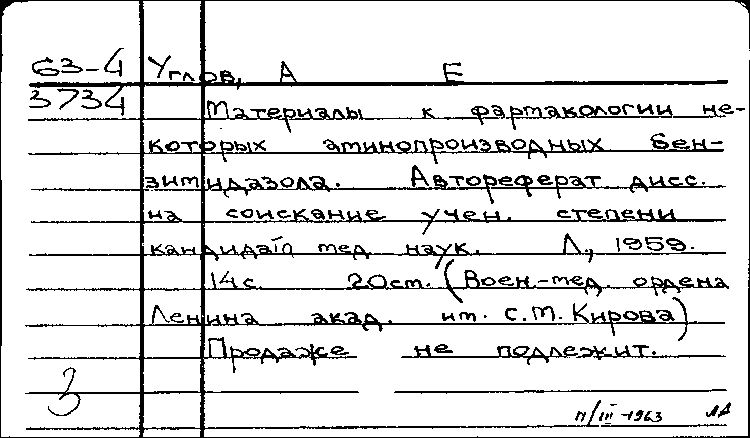 63-4 Углов, А Е
3734 Материалы к фармакологии не-
которых аминопроизводных бен-
зимидазола. Автореферат дисс.
на соискание учен. степени
кандидат мед. наук. Л., 1959.
14 с. 20 см. (Воен-мед. ордена
Ленина акад. им. С.М. Кирова)
Продаже не подлежит.
3
11/III-1963